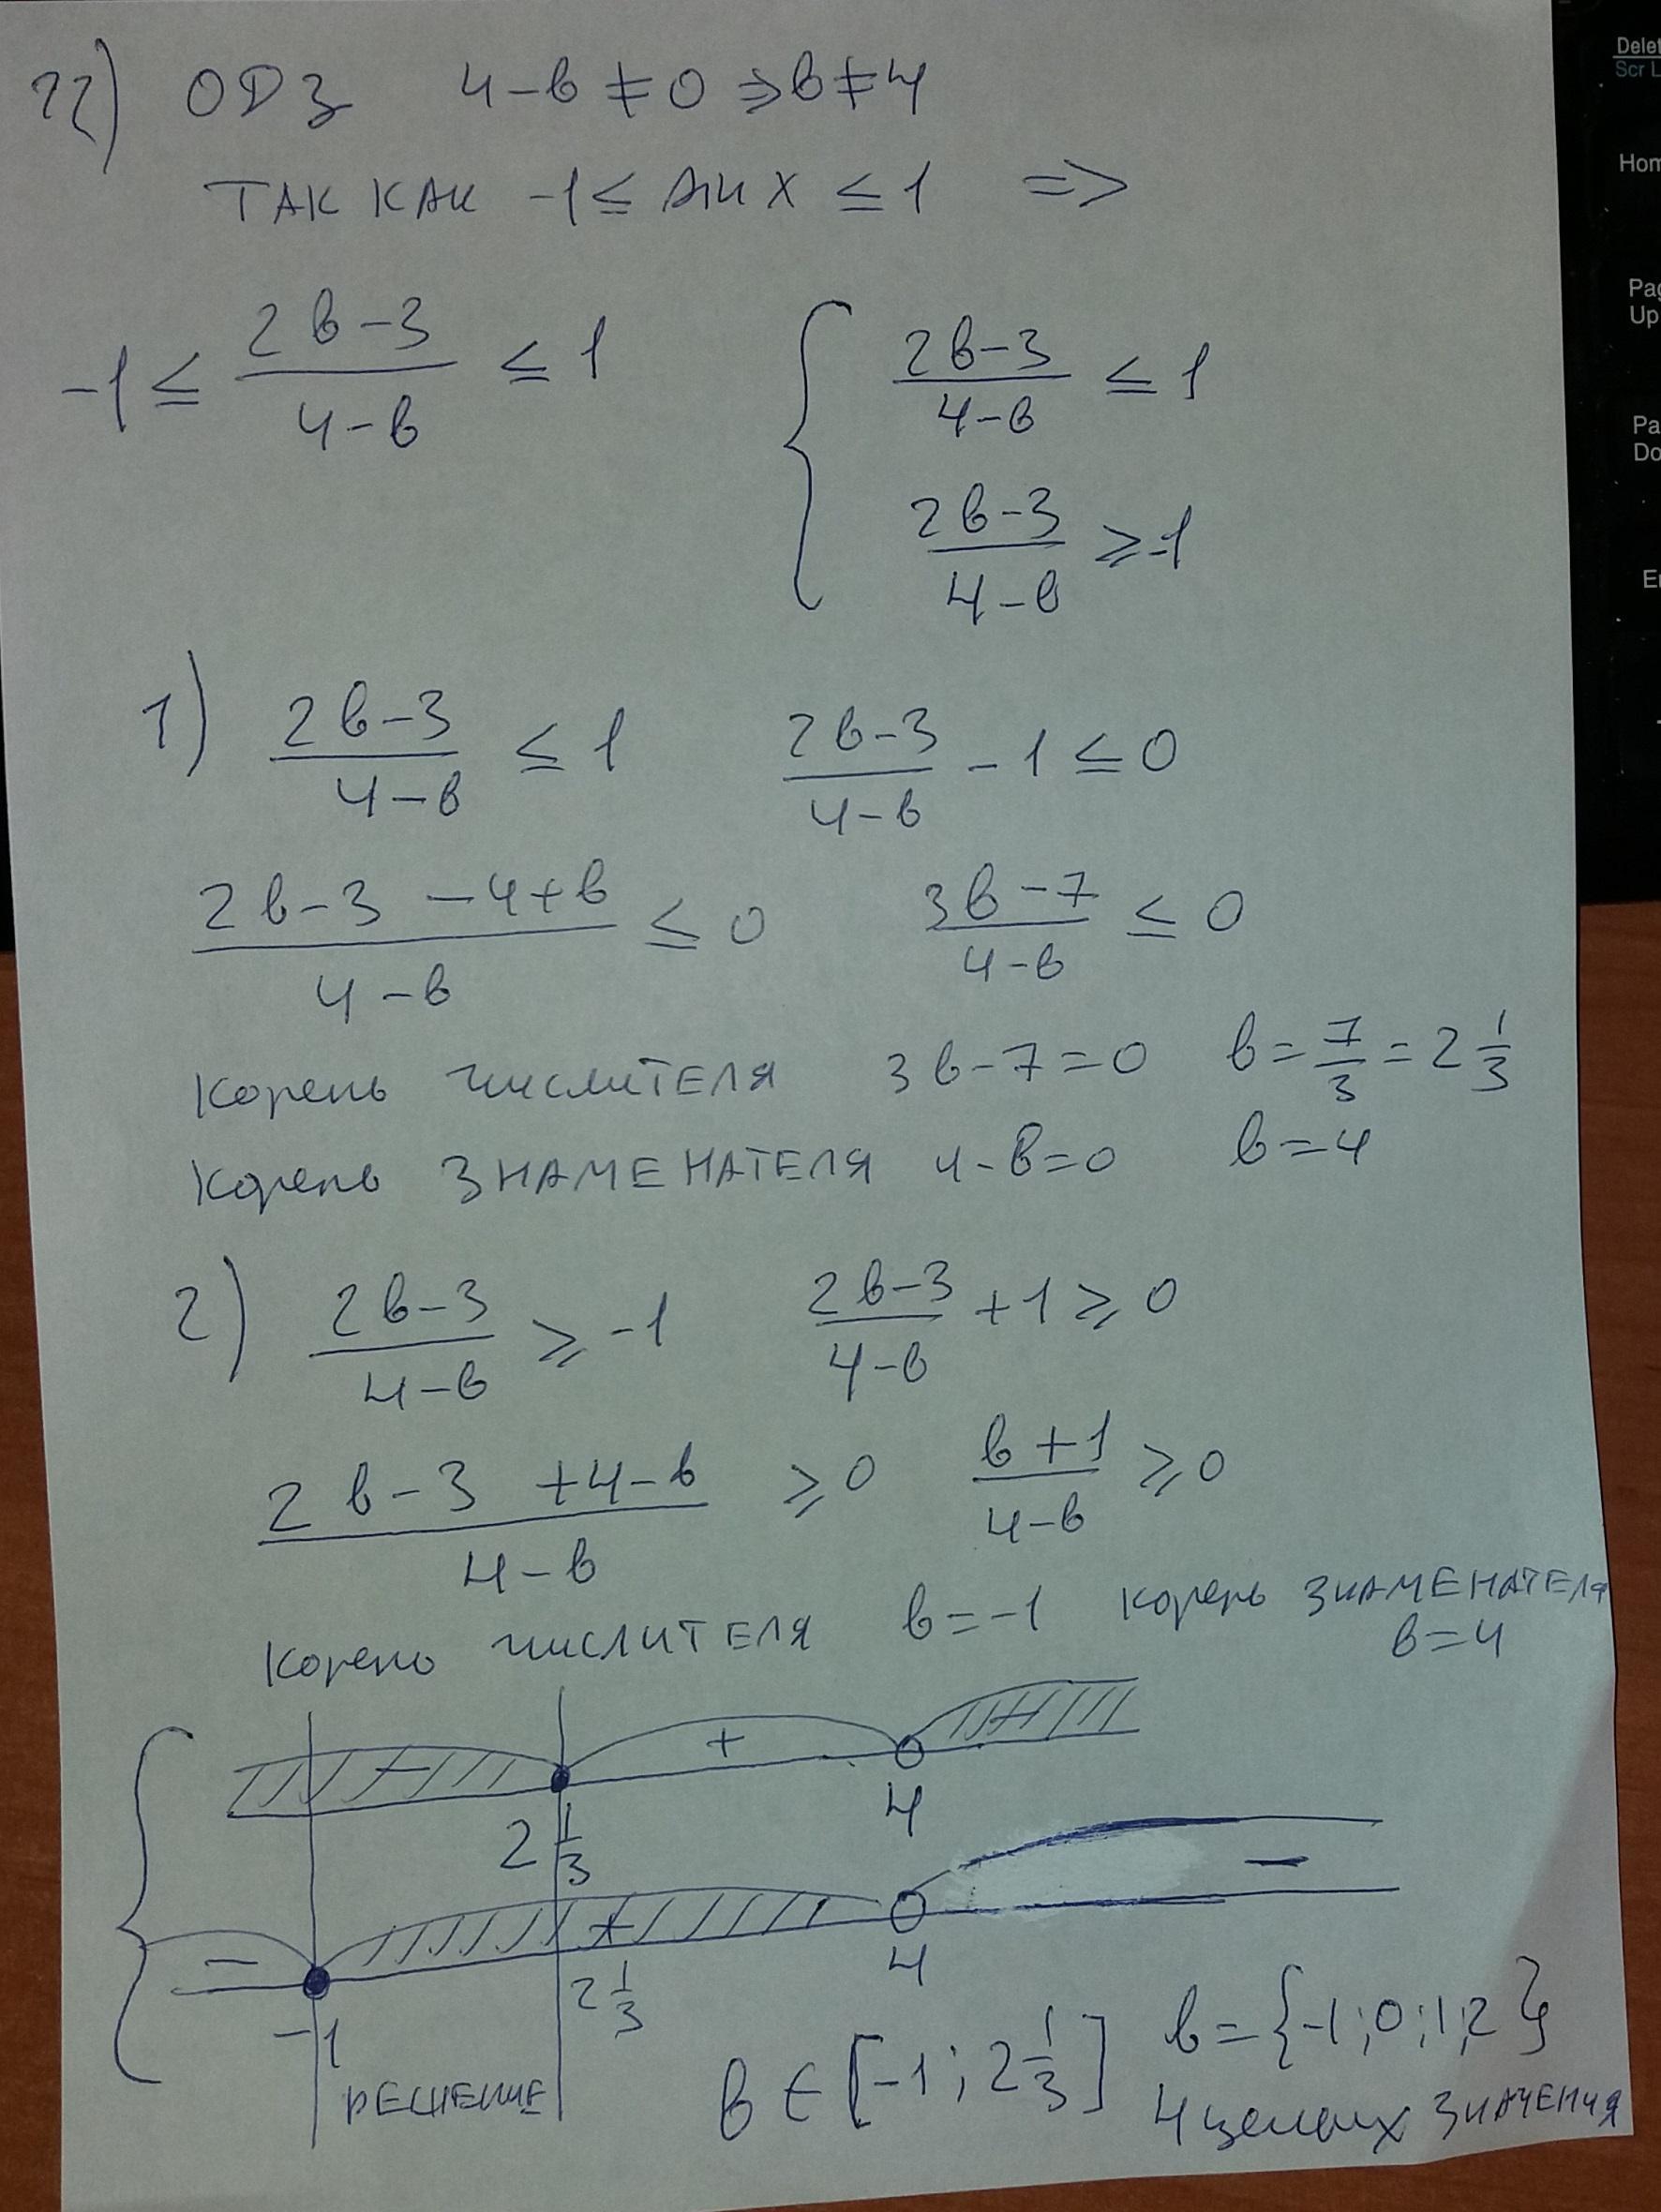 22) ОДЗ 4-в ≠ 0 ⇒ в ≠ 4
ТАК КАК -1 ≤ sin x ≤ 1 =>
-1 ≤ (2в-3)/(4-в) ≤ 1 { (2в-3)/(4-в) ≤ 1
(2в-3)/(4-в) ≥ -1
1) (2в-3)/(4-в) ≤ 1 (2в-3)/(4-в) - 1 ≤ 0
(2в-3-4+в)/(4-в) ≤ 0 (3в-7)/(4-в) ≤ 0
Корень числителя 3в-7=0 в = 7/3 = 2 1/3
Корень знаменателя 4-в=0 в=4
2) (2в-3)/(4-в) ≥ -1 (2в-3)/(4-в) + 1 ≥ 0
(2в-3+4-в)/(4-в) ≥ 0 (в+1)/(4-в) ≥ 0
Корень числителя в = -1 корень знаменателя
в=4
- + -
2 1/3 4
- + -
-1 2 1/3 4
РЕШЕНИЕ в ∈ [-1; 2 1/3] в = {-1; 0; 1; 2}
4 целых значения
Delet
Scr L
Hom
Pag
Up
Pa
Do